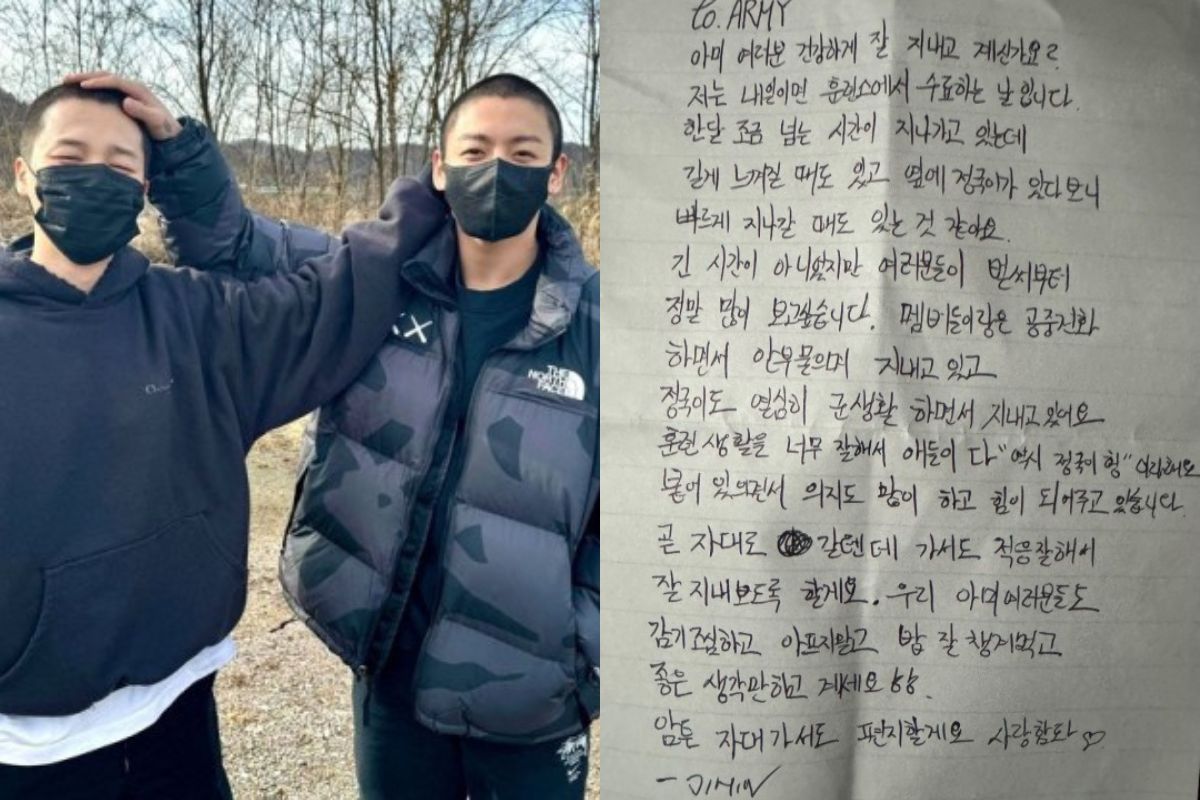 XX
THE
NORTH
FACE
to. ARMY
아미 여러분 건강하게 잘 지내고 계신가요?
저는 내일이면 훈련소에서 수료하는 날입니다.
한달 조금 넘는 시간이 지나가고 있는데
길게 느껴질 때도 있고 옆에 정국이가 있다보니
빠르게 지나갈 때도 있는 것 같아요.
긴 시간이 아니였지만 여러분들이 벌써부터
정말 많이 보고싶습니다. 멤버들이랑은 공중전화
하면서 안부물으며 지내고 있고
정국이도 열심히 군생활 하면서 지내고있어요
훈련생활을 너무 잘해서 애들이 다 "역시 정국이 형" 이라해요
붙어 있으면서 의지도 많이 하고 힘이 되어주고 있습니다.
곧 자대로 갈텐데 가서도 적응잘해서
잘 지내보도록 할게요. 우리 아미여러분들도
감기조심하고 아프지말고 밥 잘 챙겨먹고
좋은 생각만하고 계세요
암튼 자대가서도 편지할게요 사랑함다♡
- JIMIN